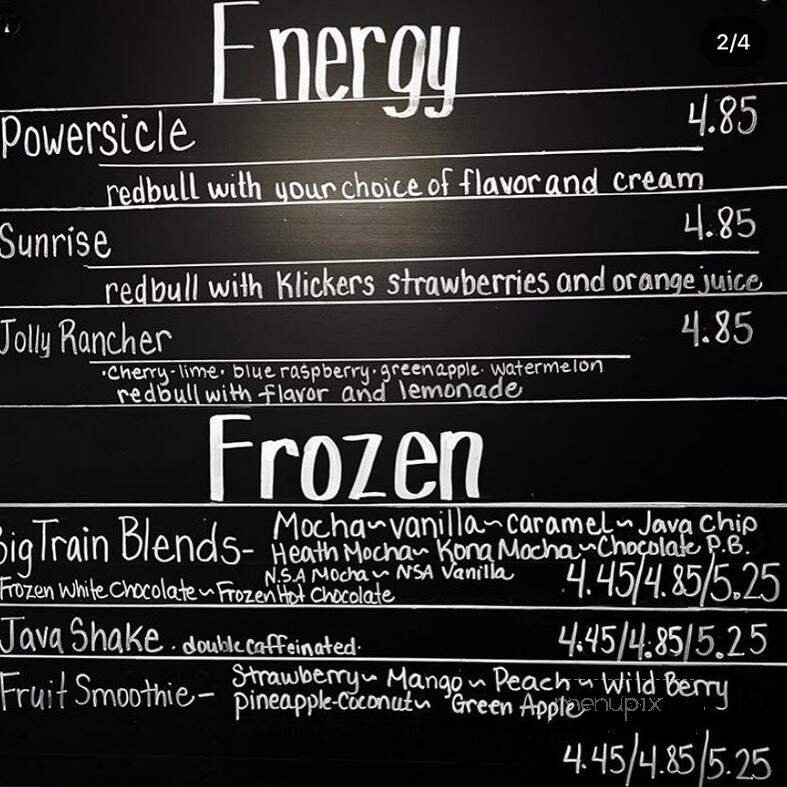 2/4
Energy
Powersicle 4.85
redbull with your choice of flavor and cream
Sunrise 4.85
redbull with Klickers strawberries and orange juice
Jolly Rancher 4.85
·Cherry·lime· blue raspberry·green apple· watermelon
redbull with flavor and lemonade
Frozen
Big Train Blends- Mocha~vanilla~caramel~Java Chip
Heath Mocha~Kona Mocha~Chocolate P.B.
N.S.A Mocha~ NSA Vanilla 4.45/4.85/5.25
Frozen White Chocolate~Frozen Hot Chocolate
Java Shake · double caffeinated· 4.45/4.85/5.25
Fruit Smoothie- Strawberry~ Mango~Peach~Wild Berry
pineapple-Coconut~ Green Apple
menupix
4.45/4.85/5.25